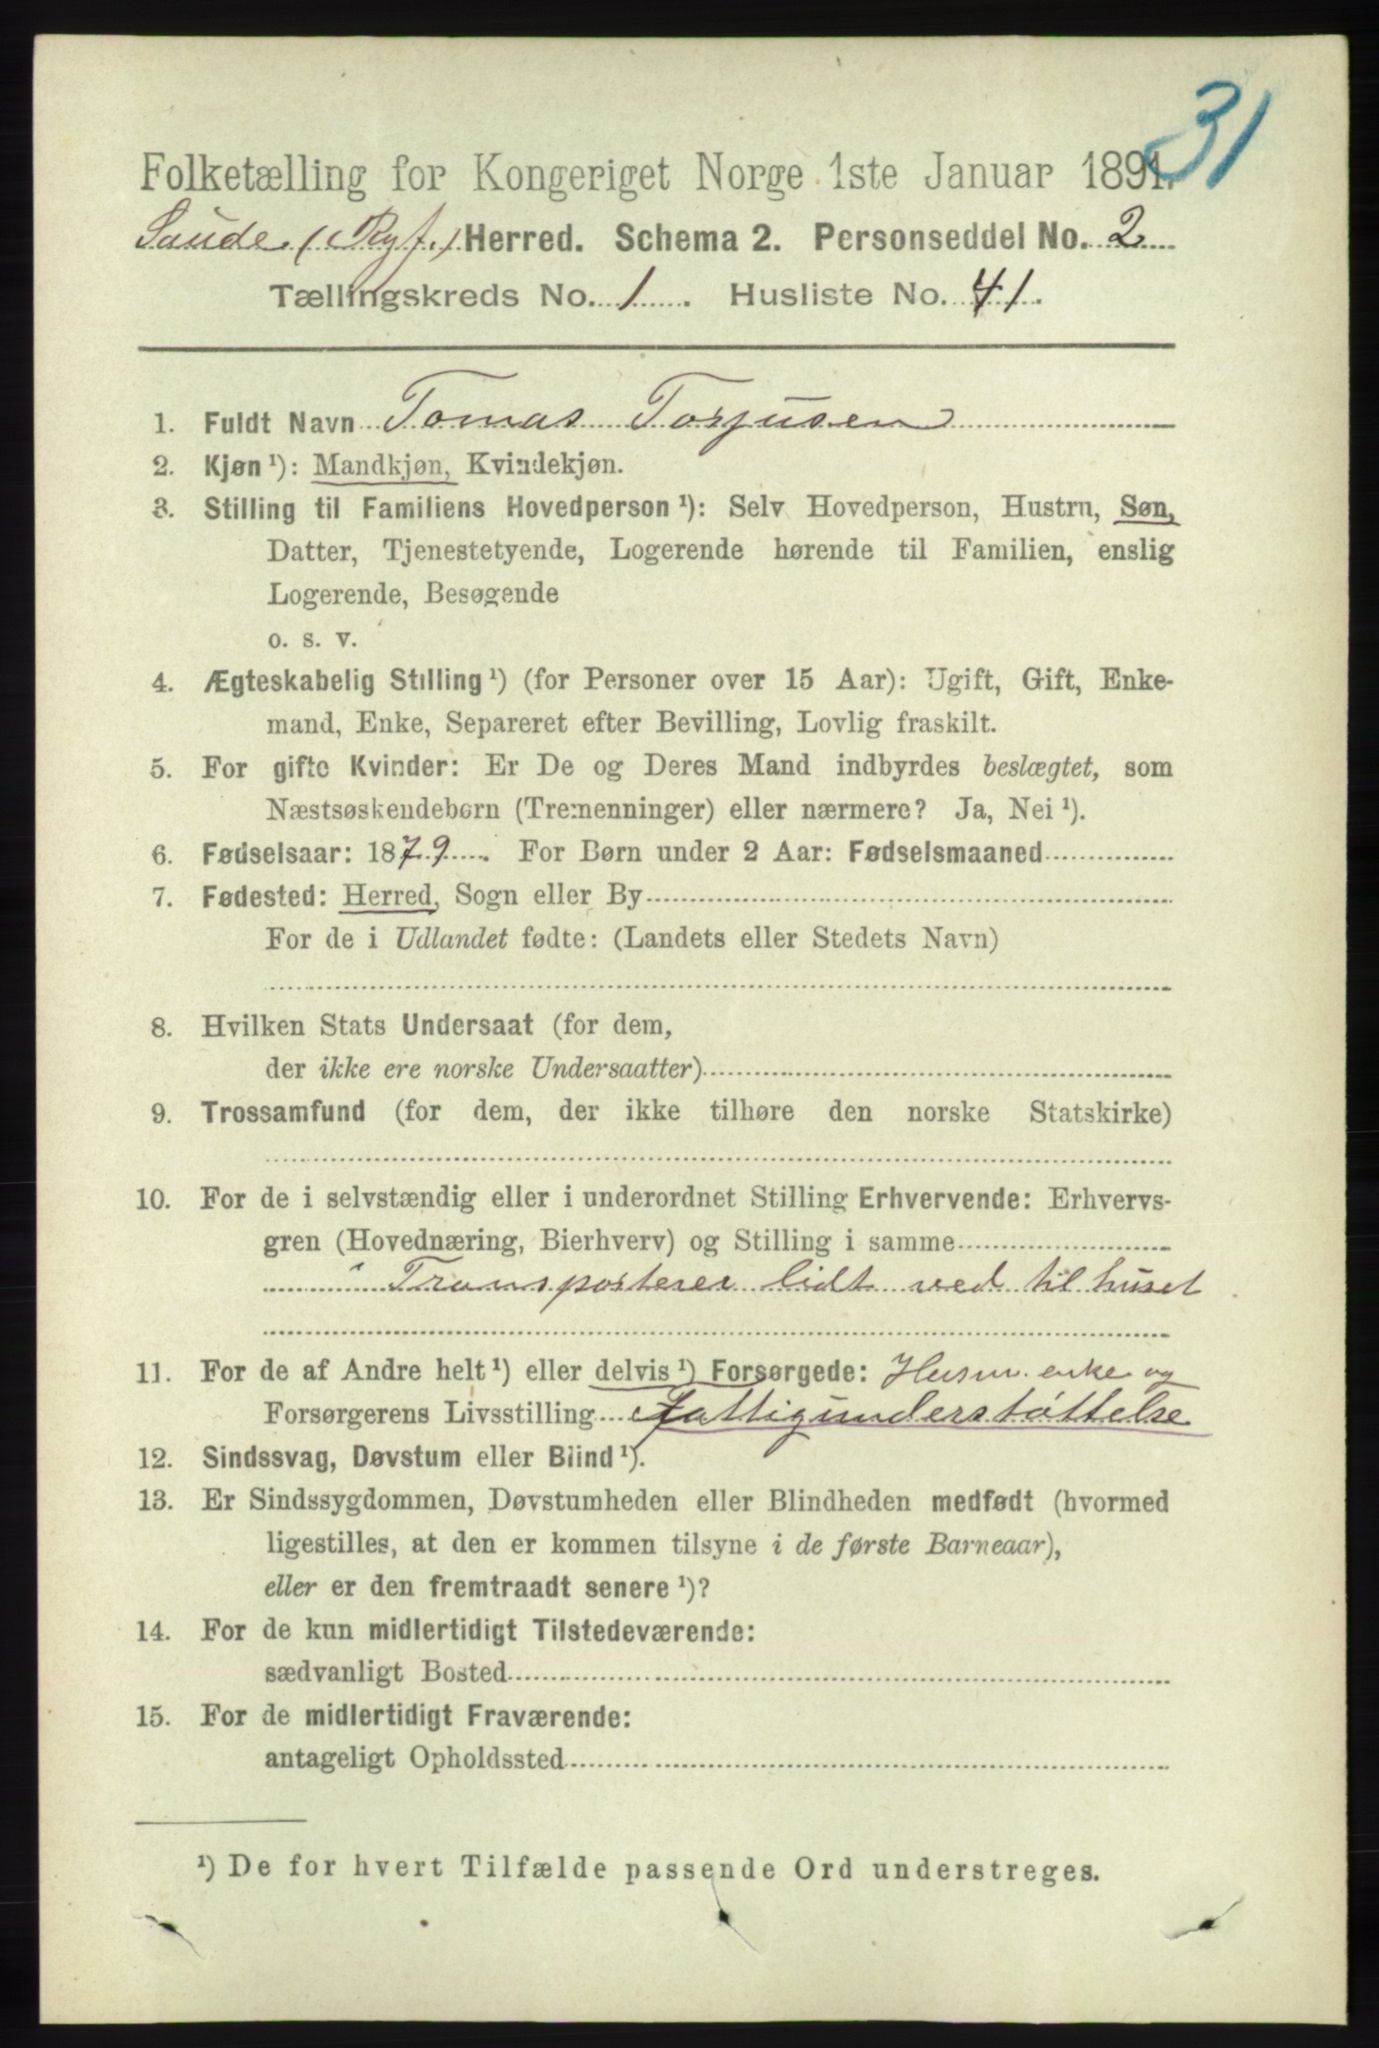 31
Folketælling for Kongeriget Norge 1ste Januar 1891.
Saude (Ryf.) Herred. Schema 2. Personseddel No. 2
Tællingskreds No. 1. Husliste No. 41.
1. Fuldt Navn Tomas Torjusen
2. Kjøn¹): Mandkjøn, Kvindekjøn.
3. Stilling til Familiens Hovedperson¹): Selv Hovedperson, Hustru, Søn,
Datter, Tjenestetyende, Logerende hørende til Familien, enslig
Logerende, Besøgende
o. s. v.
4. Ægteskabelig Stilling¹) (for Personer over 15 Aar): Ugift, Gift, Enke-
mand, Enke, Separeret efter Bevilling, Lovlig fraskilt.
5. For gifte Kvinder: Er De og Deres Mand indbyrdes beslægtet, som
Næstsøskendebørn (Tremenninger) eller nærmere? Ja, Nei¹).
6. Fødselsaar: 1879. For Børn under 2 Aar: Fødselsmaaned
7. Fødested: Herred, Sogn eller By
For de i Udlandet fødte: (Landets eller Stedets Navn)
8. Hvilken Stats Undersaat (for dem,
der ikke ere norske Undersaatter)
9. Trossamfund (for dem, der ikke tilhøre den norske Statskirke)
10. For de i selvstændig eller i underordnet Stilling Erhvervende: Erhvervs-
gren (Hovednæring, Bierhverv) og Stilling i samme
Transporterer lidt ved til huset
11. For de af Andre helt¹) eller delvis¹) Forsørgede: Husm. enke og
Forsørgerens Livsstilling Fattigunderstøttelse
12. Sindssvag, Døvstum eller Blind¹).
13. Er Sindssygdommen, Døvstumheden eller Blindheden medfødt (hvormed
ligestilles, at den er kommen tilsyne i de første Barneaar),
eller er den fremtraadt senere¹)?
14. For de kun midlertidigt Tilstedeværende:
sædvanligt Bosted
15. For de midlertidigt Fraværende:
antageligt Opholdssted
¹) De for hvert Tilfælde passende Ord understreges.